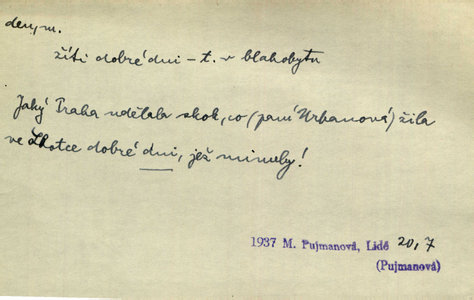 den, m.
žíti dobré dni – t. v blahobytu
Jaký Praha udělala skok, co (paní Urbanová) žila
ve Lhotce dobré dni, jež minuly!
1937 M. Pujmanová, Lidé 20, 7
(Pujmanová)